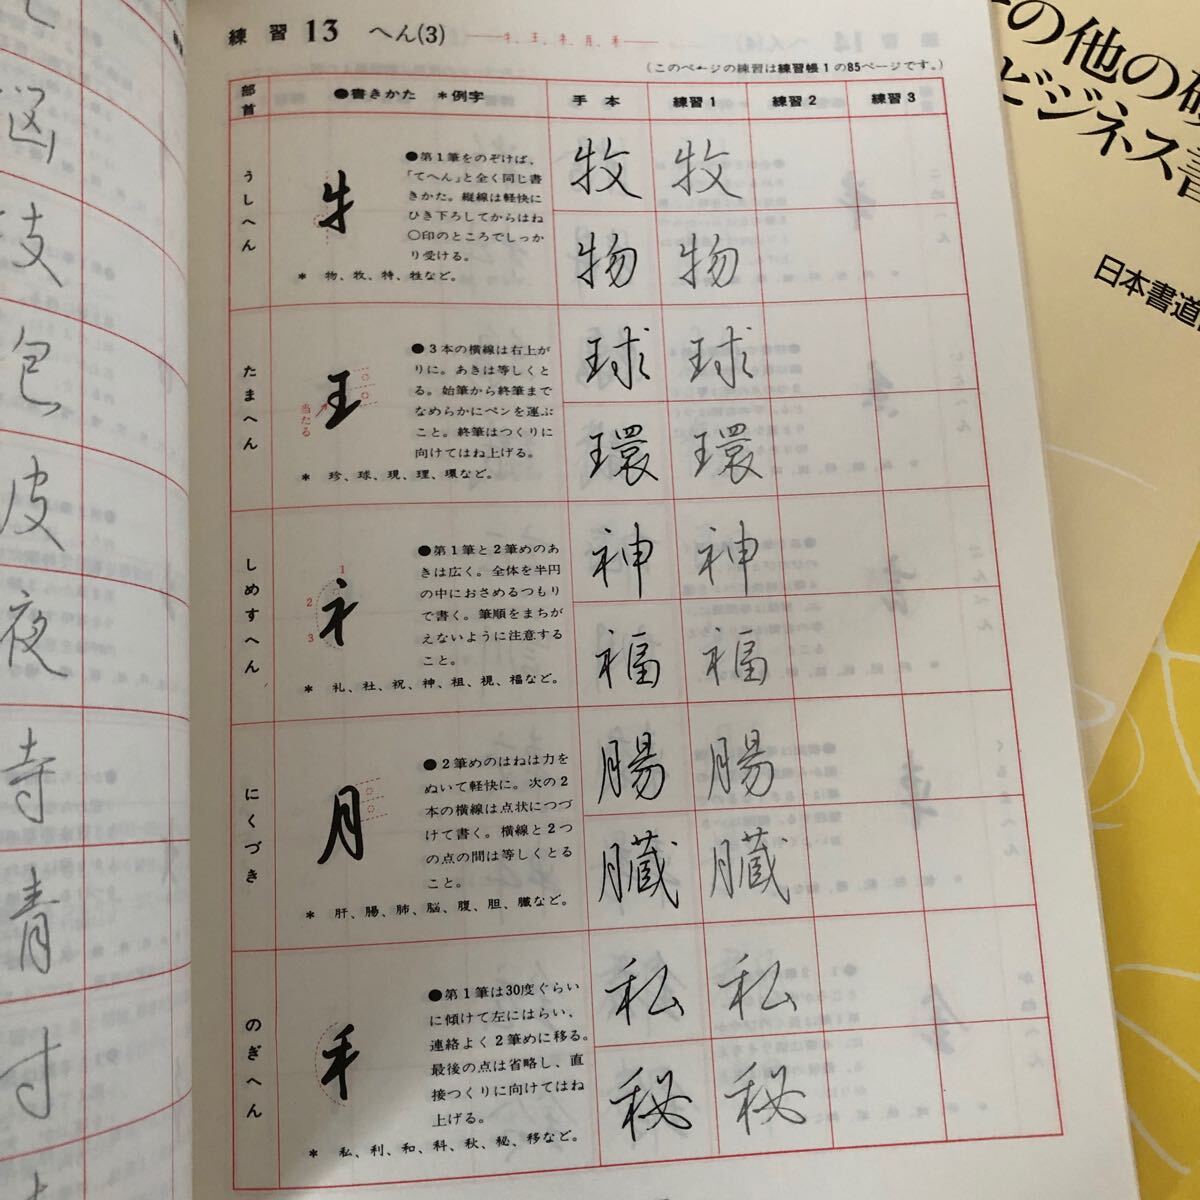 練習13 へん(3) 牜、王、ネ、月、禾
(このページの練習は練習帳1の85ページです。)
部首 ●書きかた *例字 手本 練習1 練習2 練習3
うしへん
牜
●第1筆をのぞけば、
「てへん」と全く同じ書
きかた。縦線は軽快に
ひき下ろしてからはね
〇印のところでしっか
り受ける。
* 物、牧、特、牲など。
牧 牧
物 物
たまへん
王
当たる
●3本の横線は右上が
りに。あきは等しくと
る。始筆から終筆まで
なめらかにペンを運ぶ
こと。終筆はつくりに
向けてはね上げる。
* 珍、球、現、理、環など。
球 球
環 環
しめすへん
ネ
1
2
3
●第1筆と2筆めのあ
きは広く。全体を半円
の中におさめるつもり
で書く。筆順をまちが
えないように注意する
こと。
* 礼、社、祝、神、祖、視、福など。
神 神
福 福
にくづき
月
●2筆めのはねは力を
ぬいて軽快に。次の2
本の横線は点状につづ
けて書く。横線と2つ
の点の間は等しくとる
こと。
* 肝、腸、肺、脳、腹、胆、臓など。
腸 腸
臓 臓
のぎへん
禾
●第1筆は30度ぐらい
に傾けて左にはらい、
連絡よく2筆めに移る。
最後の点は省略し、直
接つくりに向けてはね
上げる。
* 私、利、和、科、秋、秘、移など。
私 私
秘 秘
包
皮
夜
寺
青
寸
の他の
ビジネス書
日本書道